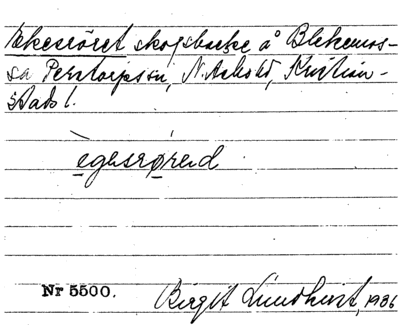 Ekesröret skogsbacke å Blekemos-
sa Perstorpssn, N. Åsbohd, Kristian-
stads l.
ègesrø̀red
Nr 5500. Birgit Lundhqvist, 1936